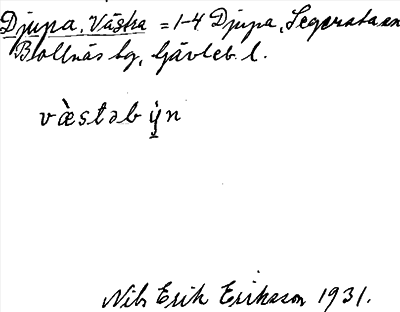 Djupa, Västra = 1-4 Djupa, Segersta sn
Bollnäs tg, Gävleb. l.
væ̀stəb ỳ̤n
Nils Erik Eriksson 1931.